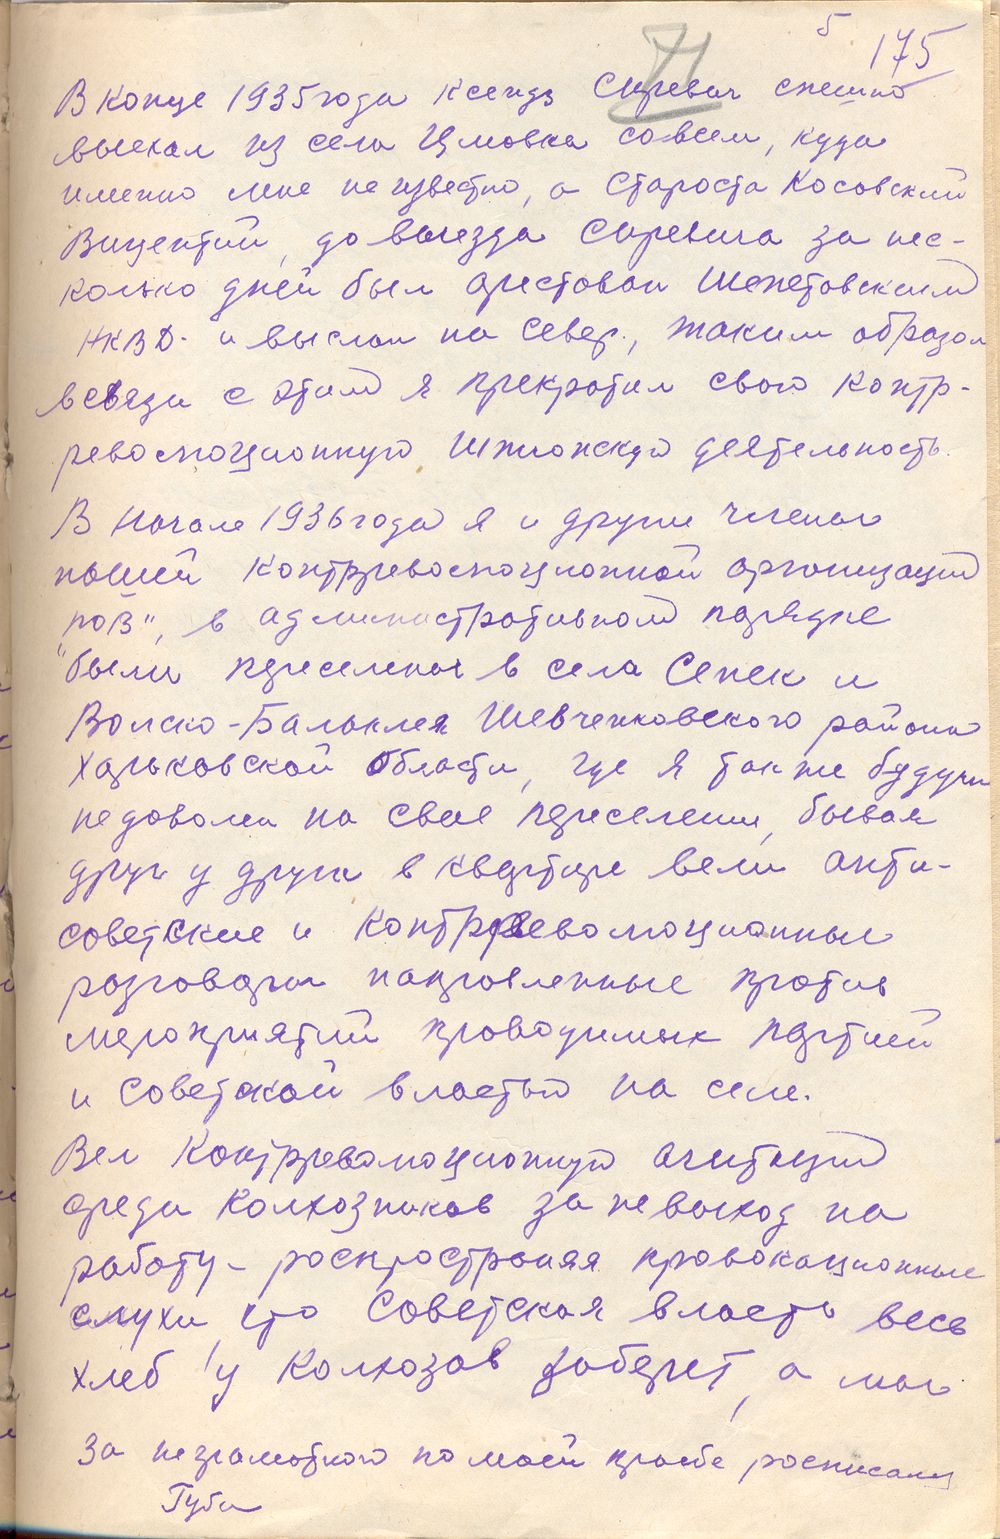 5
175
71
В конце 1935 года ксендз Сиревич спешно
выехал из села Цмовка совсем, куда
именно мне не известно, а староста Косовский
Вицентий, до выезда Сиревича за нес-
колько дней был арестован Шепетовским
НКВД. и выслан на север, таким образом
в связи с этим я прекратил свою контр-
революционную шпионскую деятельность.
В начале 1936 года я и другие члены
нашей контрреволюционной организации
"ПОВ", в административном порядке
были переселены в села Сенек и
Волско-Балаклея Шевченковского района
Харьковской области, где я также будучи
недоволен на свое переселение, бывая
друг у друга в квартире вели анти-
советские и контрреволюционные
разговоры направленные против
мероприятий проводимых партией
и советской властью на селе.
Вел контрреволюционную агитацию
среди колхозников за невыход на
работу - роспространяя провокационные
слухи, что советская власть весь
хлеб у колхозов заберет, а мы
За неграмотного по моей прозбе росписалась
Губа